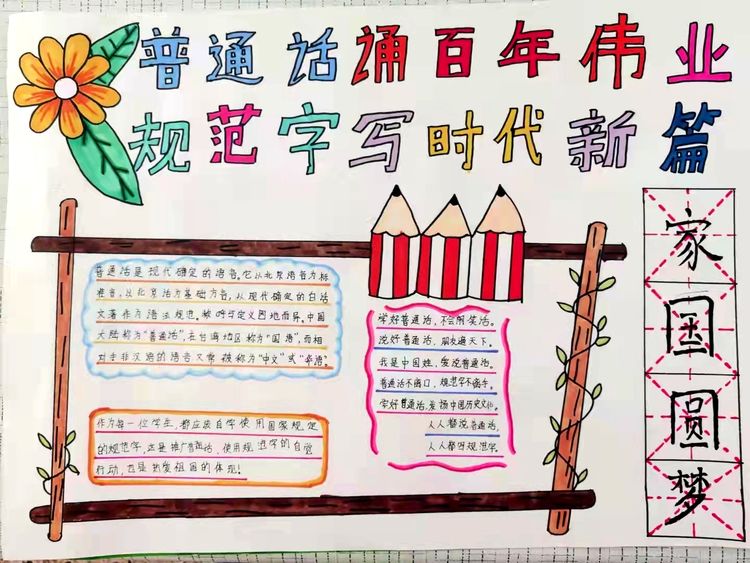 普通话诵百年伟业
规范字写时代新篇
普通话是现代确定的语音。它从北京语音为标
准音，以北京话为基础方言，从现代确定的白话
文著作为语法规范。被 定义因地而异。中国
大陆称为“普通话”，在台湾地区称为“国语”，而相
对于非汉语的语言又常被称为“中文”或“华语”。
作为每一位学生，都应该自字使用国家规定
的规范字，这是推广普通话、使用规范字的自觉
行动，也是热爱祖国的体现！
学好普通话，不会闹笑话。
说好普通话，朋友遍天下。
我是中国娃，爱说普通话。
普通话不离口，规范字不离手。
学好普通话，发扬中国历史文化。
人人都说普通话，
人人都写规范字。
家
国
圆
梦